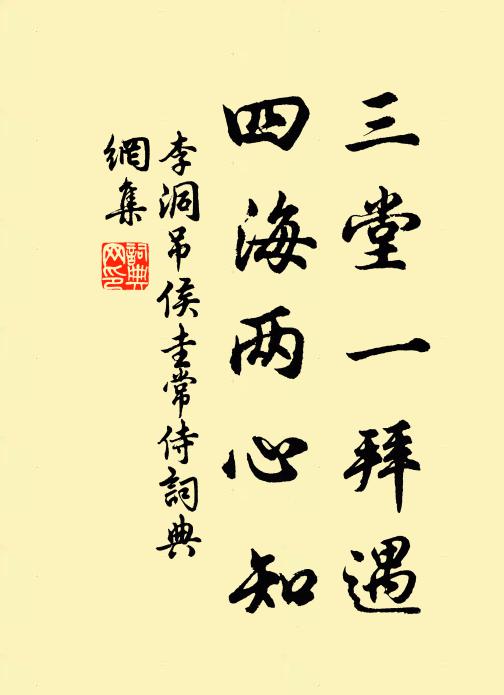 三堂一拜遇
四海两心知
李洞吊侯圭常侍詞典
網集
詞典
网印